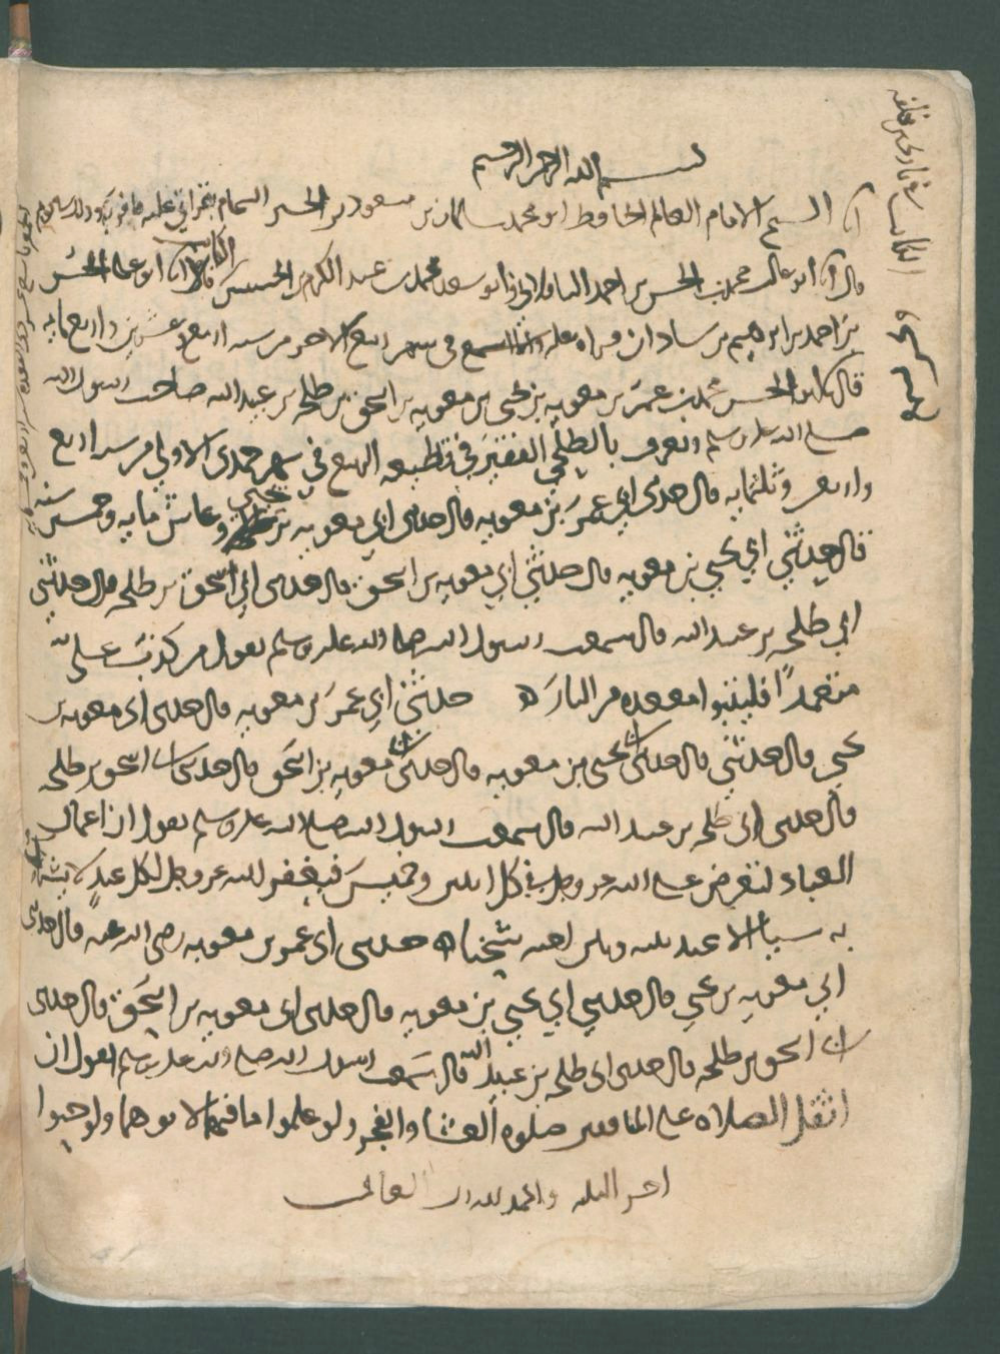 بسم الله الرحمن الرحيم
انا الشيخ الامام العالم الحافظ ابو محمد سلمان بن مسعود بن الحسن الشحام بقراتي عليه
قال انا ابو غالب محمد بن الحسن بن احمد الباقلاني وابو سعد محمد بن عبد الكريم بن الحسين قالا انا ابو علي الحسن
بن احمد بن ابرهيم بن شاذان قراه عليه وانا اسمع في شهر ربيع الاخر من سنه اربع وعشرين واربع مايه
قال ابو الحسن محمد بن عمر بن معويه بن يحيى بن معويه بن اسحق بن طلحه بن عبيد الله صاحب رسول الله
صلى الله عليه وسلم ويعرف بالطلحي الفقير في قطيعه الربيع في شهر جمدى الاولى من سنه اربع
واربعين وثلثمايه قال حدثني ابي عمر بن معويه قال حدثني ابي معويه بن يحيى وعاش مايه وخمسين سنه
قال حدثني ابي يحيى بن معويه قال حدثني ابي معويه بن اسحق قال حدثني ابي اسحق بن طلحه قال حدثني
ابي طلحه بن عبيد الله قال سمعت رسول الله صلى الله عليه وسلم يقول من كذب علي
متعمدًا فليتبوا مقعده من النار ه حدثني ابي عمر بن معويه قال حدثني ابي معويه بن
يحيى قال حدثني قال حدثني ابي يحيى بن معويه قال حدثني ابي معويه بن اسحق قال حدثني ابي اسحق بن طلحه
قال حدثني ابي طلحه بن عبيد الله قال سمعت رسول الله صلى الله عليه وسلم يقول ان اعمال
العباد لتعرض على الله عز وجل في كل اثنين وخميس فيغفر الله عز وجل لكل عبدٍ لا يشرك
به شيا الا عبد بينه وبين اخيه شحنا ه حدثني ابي عمر بن معويه رضي الله عنه قال حدثني
ابي معويه بن يحيى قال حدثني ابي يحيى بن معويه قال حدثني ابي معويه بن اسحق قال حدثني
ابي اسحق بن طلحه قال حدثني ابي طلحه بن عبيد الله قال سمعت رسول الله صلى الله عليه وسلم يقول ان
اثقل الصلاه على المنافقين صلوه العشا والفجر ولو علموا ما فيهما لاتوهما ولو حبوا
اخر الثلثه والحمد لله رب العالمين